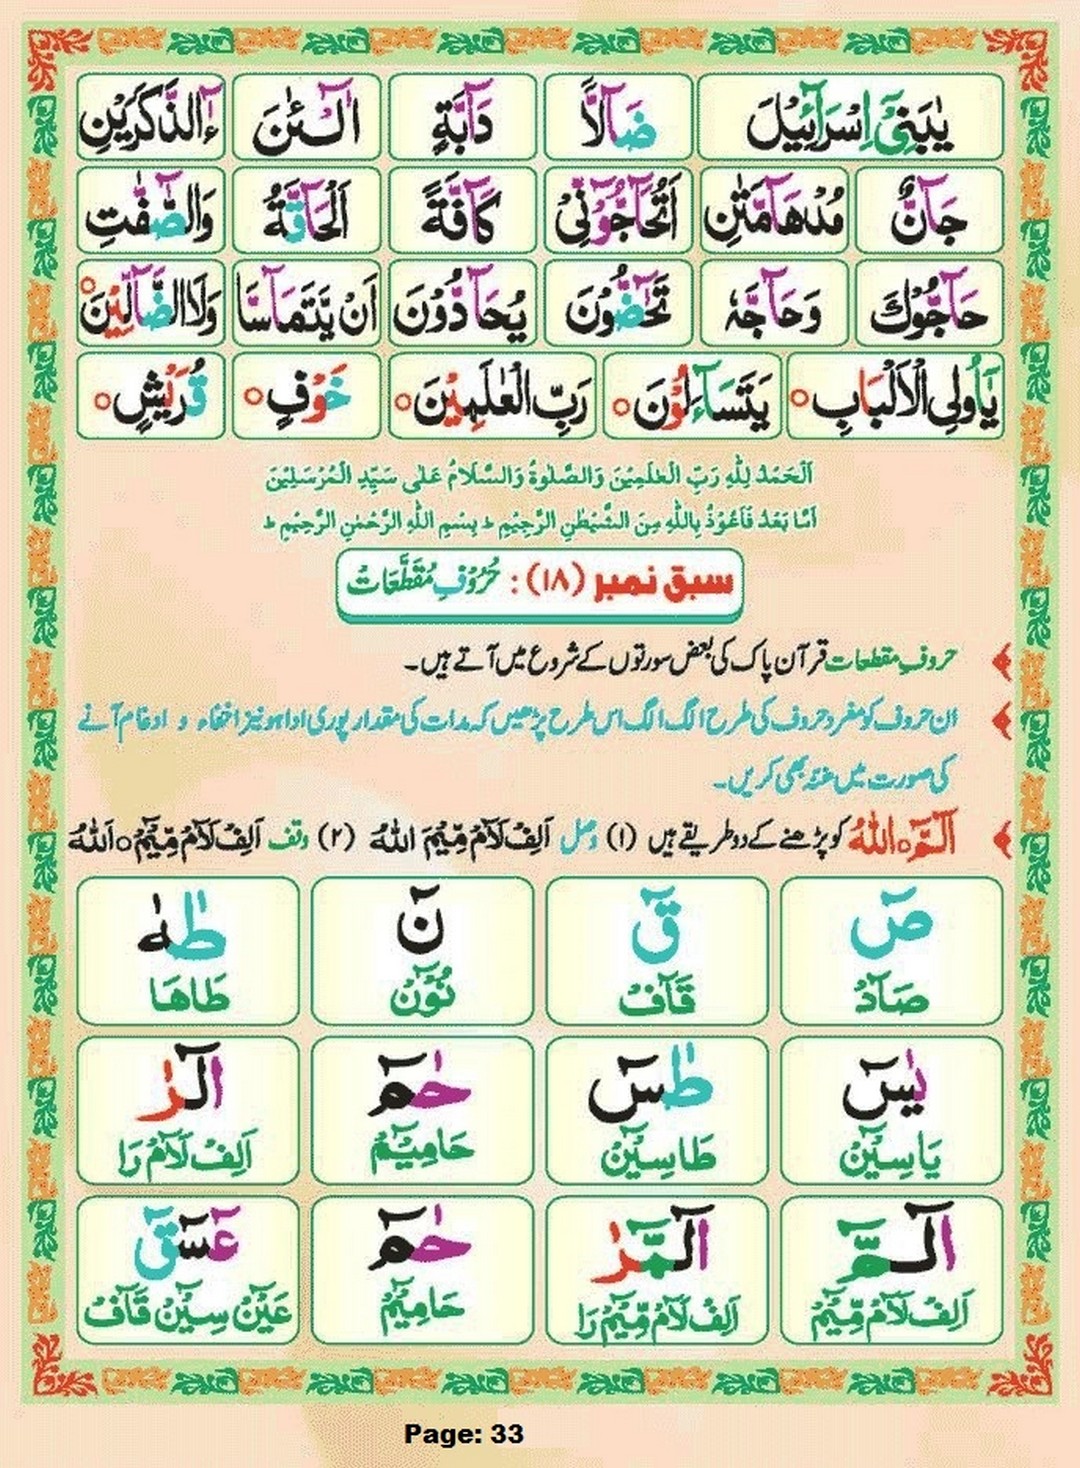 يٰبَنِيْٓ اِسْرَآئِيْلَ ضَآلًّا دَآبَّةٍ آلْـٰٔنَ ءٰٓالذَّكَرَيْنِ
جَآنٌّ مُدْهَآمَّتٰنِ اَتُحَآجُّوْٓنِّيْ كَآفَّةً اَلْحَآقَّةُ وَالصّٰٓفّٰتِ
حَآجُّوْكَ وَحَآجَّهٗ تَحٰٓضُّوْنَ يُحَآدُّوْنَ اَنْ يَّتَمَآسَّا وَلَا الضَّآلِّيْنَ ○
يٰٓاُولِى الْاَلْبَابِ ○ يَتَسَآءَلُوْنَ ○ رَبِّ الْعٰلَمِيْنَ ○ خَوْفٍ ○ قُرَيْشٍ ○
اَلْحَمْدُ لِلّٰهِ رَبِّ الْعٰلَمِيْنَ وَالصَّلٰوةُ وَالسَّلَامُ عَلٰى سَيِّدِ الْمُرْسَلِيْنَ
اَمَّا بَعْدُ فَاَعُوْذُ بِاللّٰهِ مِنَ الشَّيْطٰنِ الرَّجِيْمِ ط بِسْمِ اللّٰهِ الرَّحْمٰنِ الرَّحِيْمِ ط
سبق نمبر (۱۸) : حُرُوْفِ مُقَطَّعَات
حروفِ مقطعات قرآن پاک کی بعض سورتوں کے شروع میں آتے ہیں۔
ان حروف کو مفرد حروف کی طرح الگ الگ اس طرح پڑھیں کہ مدات کی مقدار پوری ادا ہو نیز اخفاء و ادغام آنے
کی صورت میں غنّہ بھی کریں۔
الٓمَّٓ ○ اللّٰهُ کو پڑھنے کے دو طریقے ہیں (۱) وصل اَلِفْ لَآمْ مِّيْمَ اللّٰهُ (۲) وقف اَلِفْ لَآمْ مِّيْٓمْ ○ اَللّٰهُ
صٓ قٓ نٓ طٰهٰ
صَآدْ قَآفْ نُوْٓنْ طَاهَا
يٰسٓ طٰسٓ حٰمٓ الٓرٰ
يَاسِيْٓنْ طَاسِيْٓنْ حَامِيْٓمْ اَلِفْ لَآمْ رَا
الٓمّٓ الٓمّٓرٰ حٰمٓ عٓسٓقٓ
اَلِفْ لَآمْ مِّيْٓمْ اَلِفْ لَآمْ مِّيْٓمْ رَا حَامِيْٓمْ عَيْٓنْ سِيْٓنْ قَآفْ
Page: 33